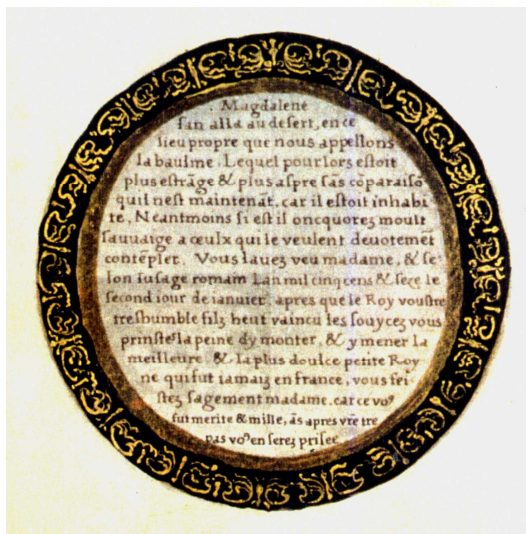 . Magdalene
san alla au desert, en ce
lieu propre que nous appellons
la baulme. Lequel pour lors estoit
plus estrāge & plus aspre sās cōparaisō
quil nest maintenāt, car il estoit inhabi
te, Neantmoins si est il oncquores moult
sauuaige a œulx qui le veulent deuotemēt
contēpler. Vous lauez veu madame, & se
lon lusage romam Lan mil cinq cens & seze le
second iour de ianuier, apres que le Roy voustre
treshumble filz heut vaincu les souycez vous
prinstes la peine dy monter, & y mener la
meilleure & la plus doulce petite Roy
ne qui fut iamaiz en france, vous fei
stez sagement madame, car ce voꝰ
fut merite & mille, ās apres vr̄e tre
pas voꝰ en serez prisee